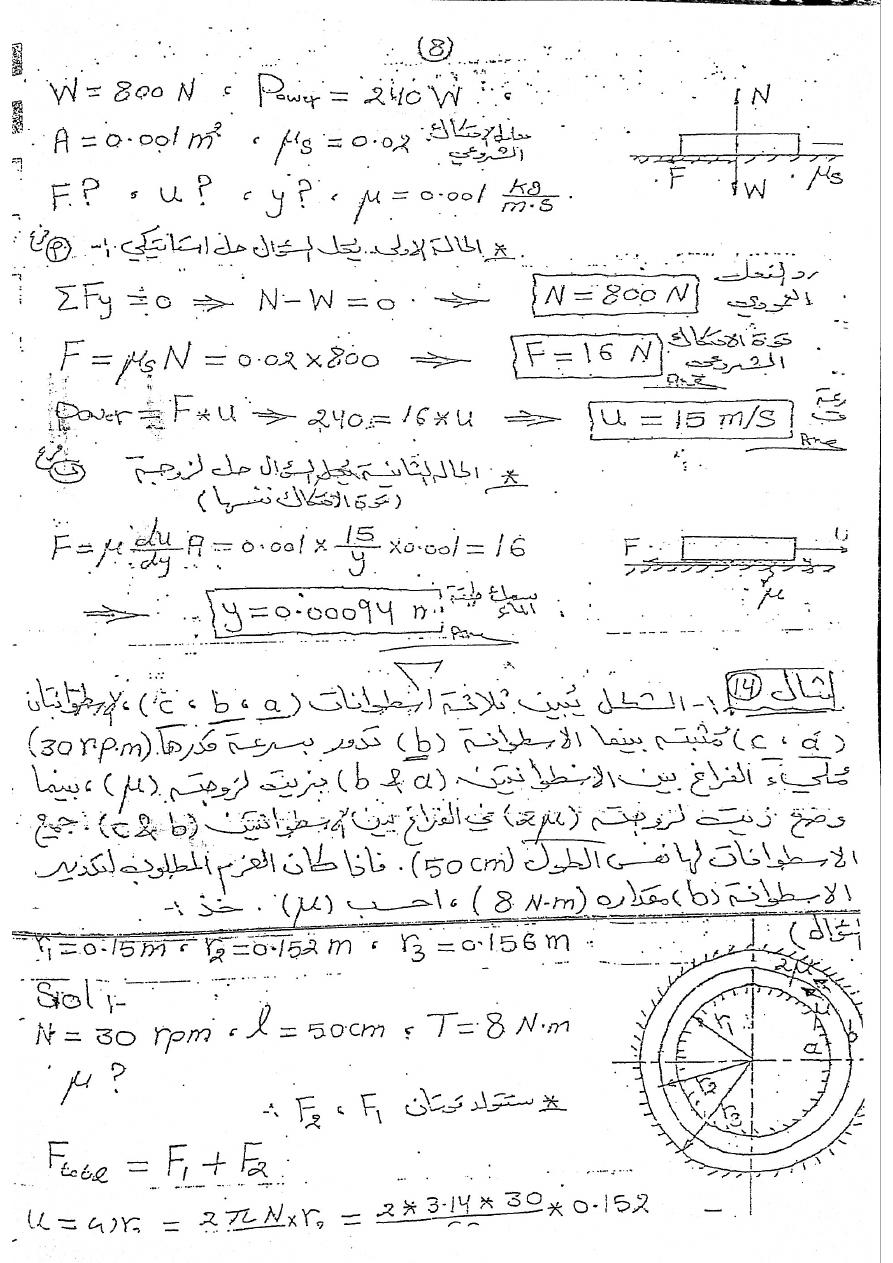 (8)
W = 800 N ، Power = 240 W ،
A = 0.001 m² ، μs = 0.02 معامل الاحتكاك الشروعي
F? ، u? ، y? ، μ = 0.001 kg/m.s
N
F W μs
* الحالة الاولى يحل السؤال حل استاتيكي :- فرع (P)
ΣFy = 0 ⇒ N - W = 0 ⇒ N = 800 N رد الفعل العمودي
F = μs N = 0.02 × 800 ⇒ F = 16 N قوة الاحتكاك الشروعي
Ans
Power = F * u ⇒ 240 = 16 * u ⇒ u = 15 m/s
Ans
* الحالة الثانية يحل السؤال حل لزوجية فرع (ب)
(قوة الاحتكاك نفسها)
F = μ du/dy A = 0.001 × 15/y × 0.001 = 16
F u
μ
⇒ y = 0.00094 m سماكة طبقة الماء
Ans
مثال (14) :- الشكل يبين ثلاثة اسطوانات (a ، b ، c) ، الاسطوانتان
(a ، c) مثبتة بينما الاسطوانة (b) تدور بسرعة قدرها (30 r.p.m)
مُليء الفراغ بين الاسطوانتين (a & b) بزيت لزوجته (μ) ، بينما
وضع زيت لزوجته (2μ) في الفراغ بين الاسطوانتين (b & c). جميع
الاسطوانات لها نفس الطول (50 cm). فاذا كان العزم المطلوب لتدوير
الاسطوانة (b) مقداره (8 N-m) ، احسب (μ). خذ :-
r₁ = 0.15 m ، r₂ = 0.152 m ، r₃ = 0.156 m
Sol :-
N = 30 rpm ، l = 50 cm ، T = 8 N.m
μ ?
2μ
μ
b
a
r₁
r₂
r₃
* ستتولد قوتان F₁ ، F₂ :-
F total = F₁ + F₂
u = ω r₂ = 2πN × r₂ = 2 * 3.14 * 30 * 0.152